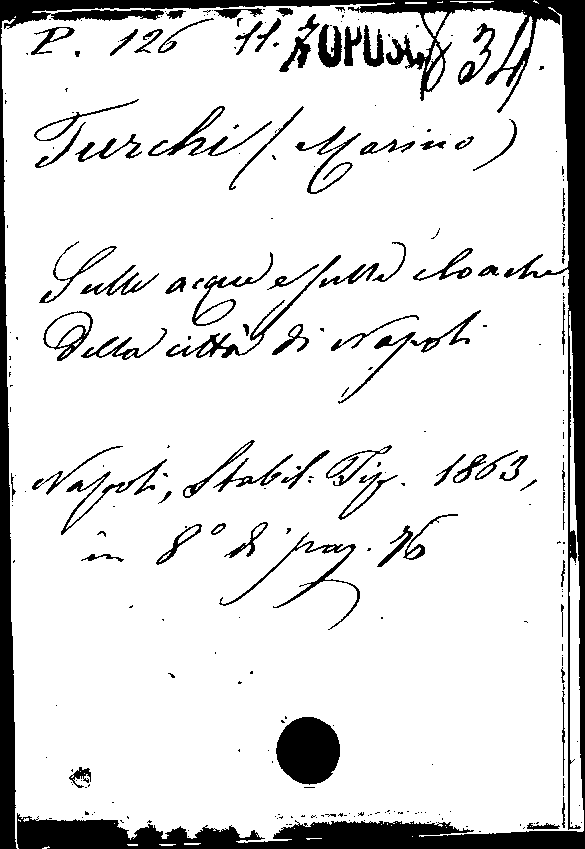 P. 126 H. OPUSC. 34).
Turchi (. Marino)
Sulle acque e sulle cloache
della città di Napoli
Napoli, Stabil: Tip. 1863,
in 8° di pag. 76